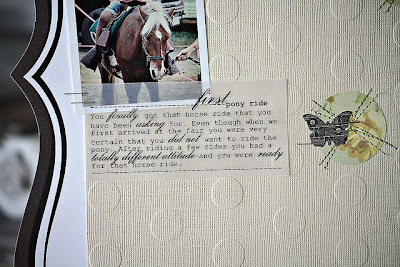 first pony ride
You finally got that horse ride that you
have been asking for. Even though when we
first arrived at the fair you were very
certain that you did not want to ride the
pony. After riding a few rides you had a
totally different attitude and you were ready
for that horse ride.